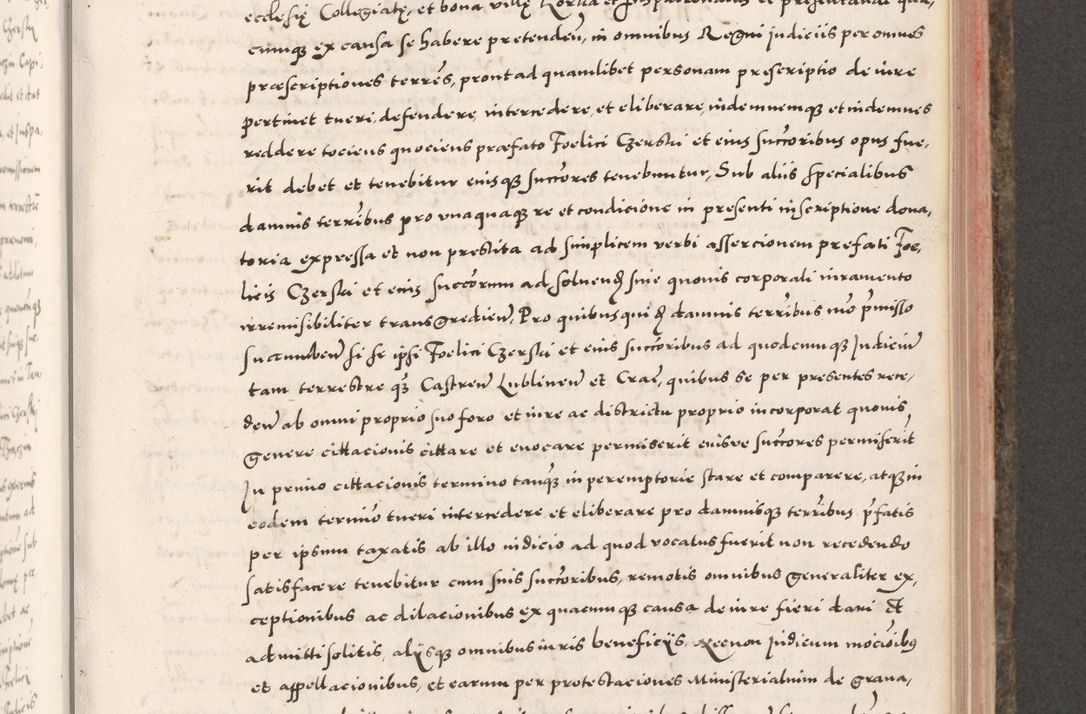 ecclesię Collegiatę, et bona villę
cumq₃ ex causa se habere pretendeñ, in omnibus Regni judiciis per omnes
præscriptiones terrẽs, prout ad quamlibet personam prescriptio de iure
pertinet tueri, defendere, intercedere, et eliberare, indemnemq₃ et indemnes
reddere tociens quociens præfato Foelici Czerski et eius succõribus opus fue,
rit debet et tenebitur eiusq₃ succõres tenebuntur, Sub aliis specialibus
damnis terrĩbus pro vnaquaq₃ re et condicione in presenti inscriptione dona,
toria expressa et non prestita ad simplicem verbi assercionem prefati Foe,
licis Czerski et eius succõrum ad solvenđ sine quovis corporali iuramento
irremisibiliter transgredieñ, Pro quibusquiđ damnis terrĩbus mõ p̃misso
succumbeñ si se ipsi Foelici Czerski et eius succõribus ad quodcumq₃ Iudiciũ
tam terrestre q₃ Castreñ Lublineñ et Craẽ, quibus se per presentes rece,
deñ ab omni proprio suo foro et iure ac districtu proprio incorporat quovis
genere cittacionis cittare et evocare permiserit eiusve succõres permiserĩt
In primo cittacionis termino tanq₃ in peremptorie stare et comparere, atq₃ in
eodem termiõ tueri intercedere et eliberare pro damnisq₃ terrĩbus p̃fatis
per ipsum taxatis ab illo iudicio ad quod vocatus fuerit non recedendo
satisfacere tenebitur cum suis succõribus, remotis omnibus generaliter ex,
ceptionibus ac dilacionibus ex quacumq₃ causa de iure fieri dari et
admitti solitis, aliisq₃ omnibus iuris beneficiis, Necnon Iudicum mocõibus
et appellacionibus, et earum per protestaciones Ministerialium de grava,